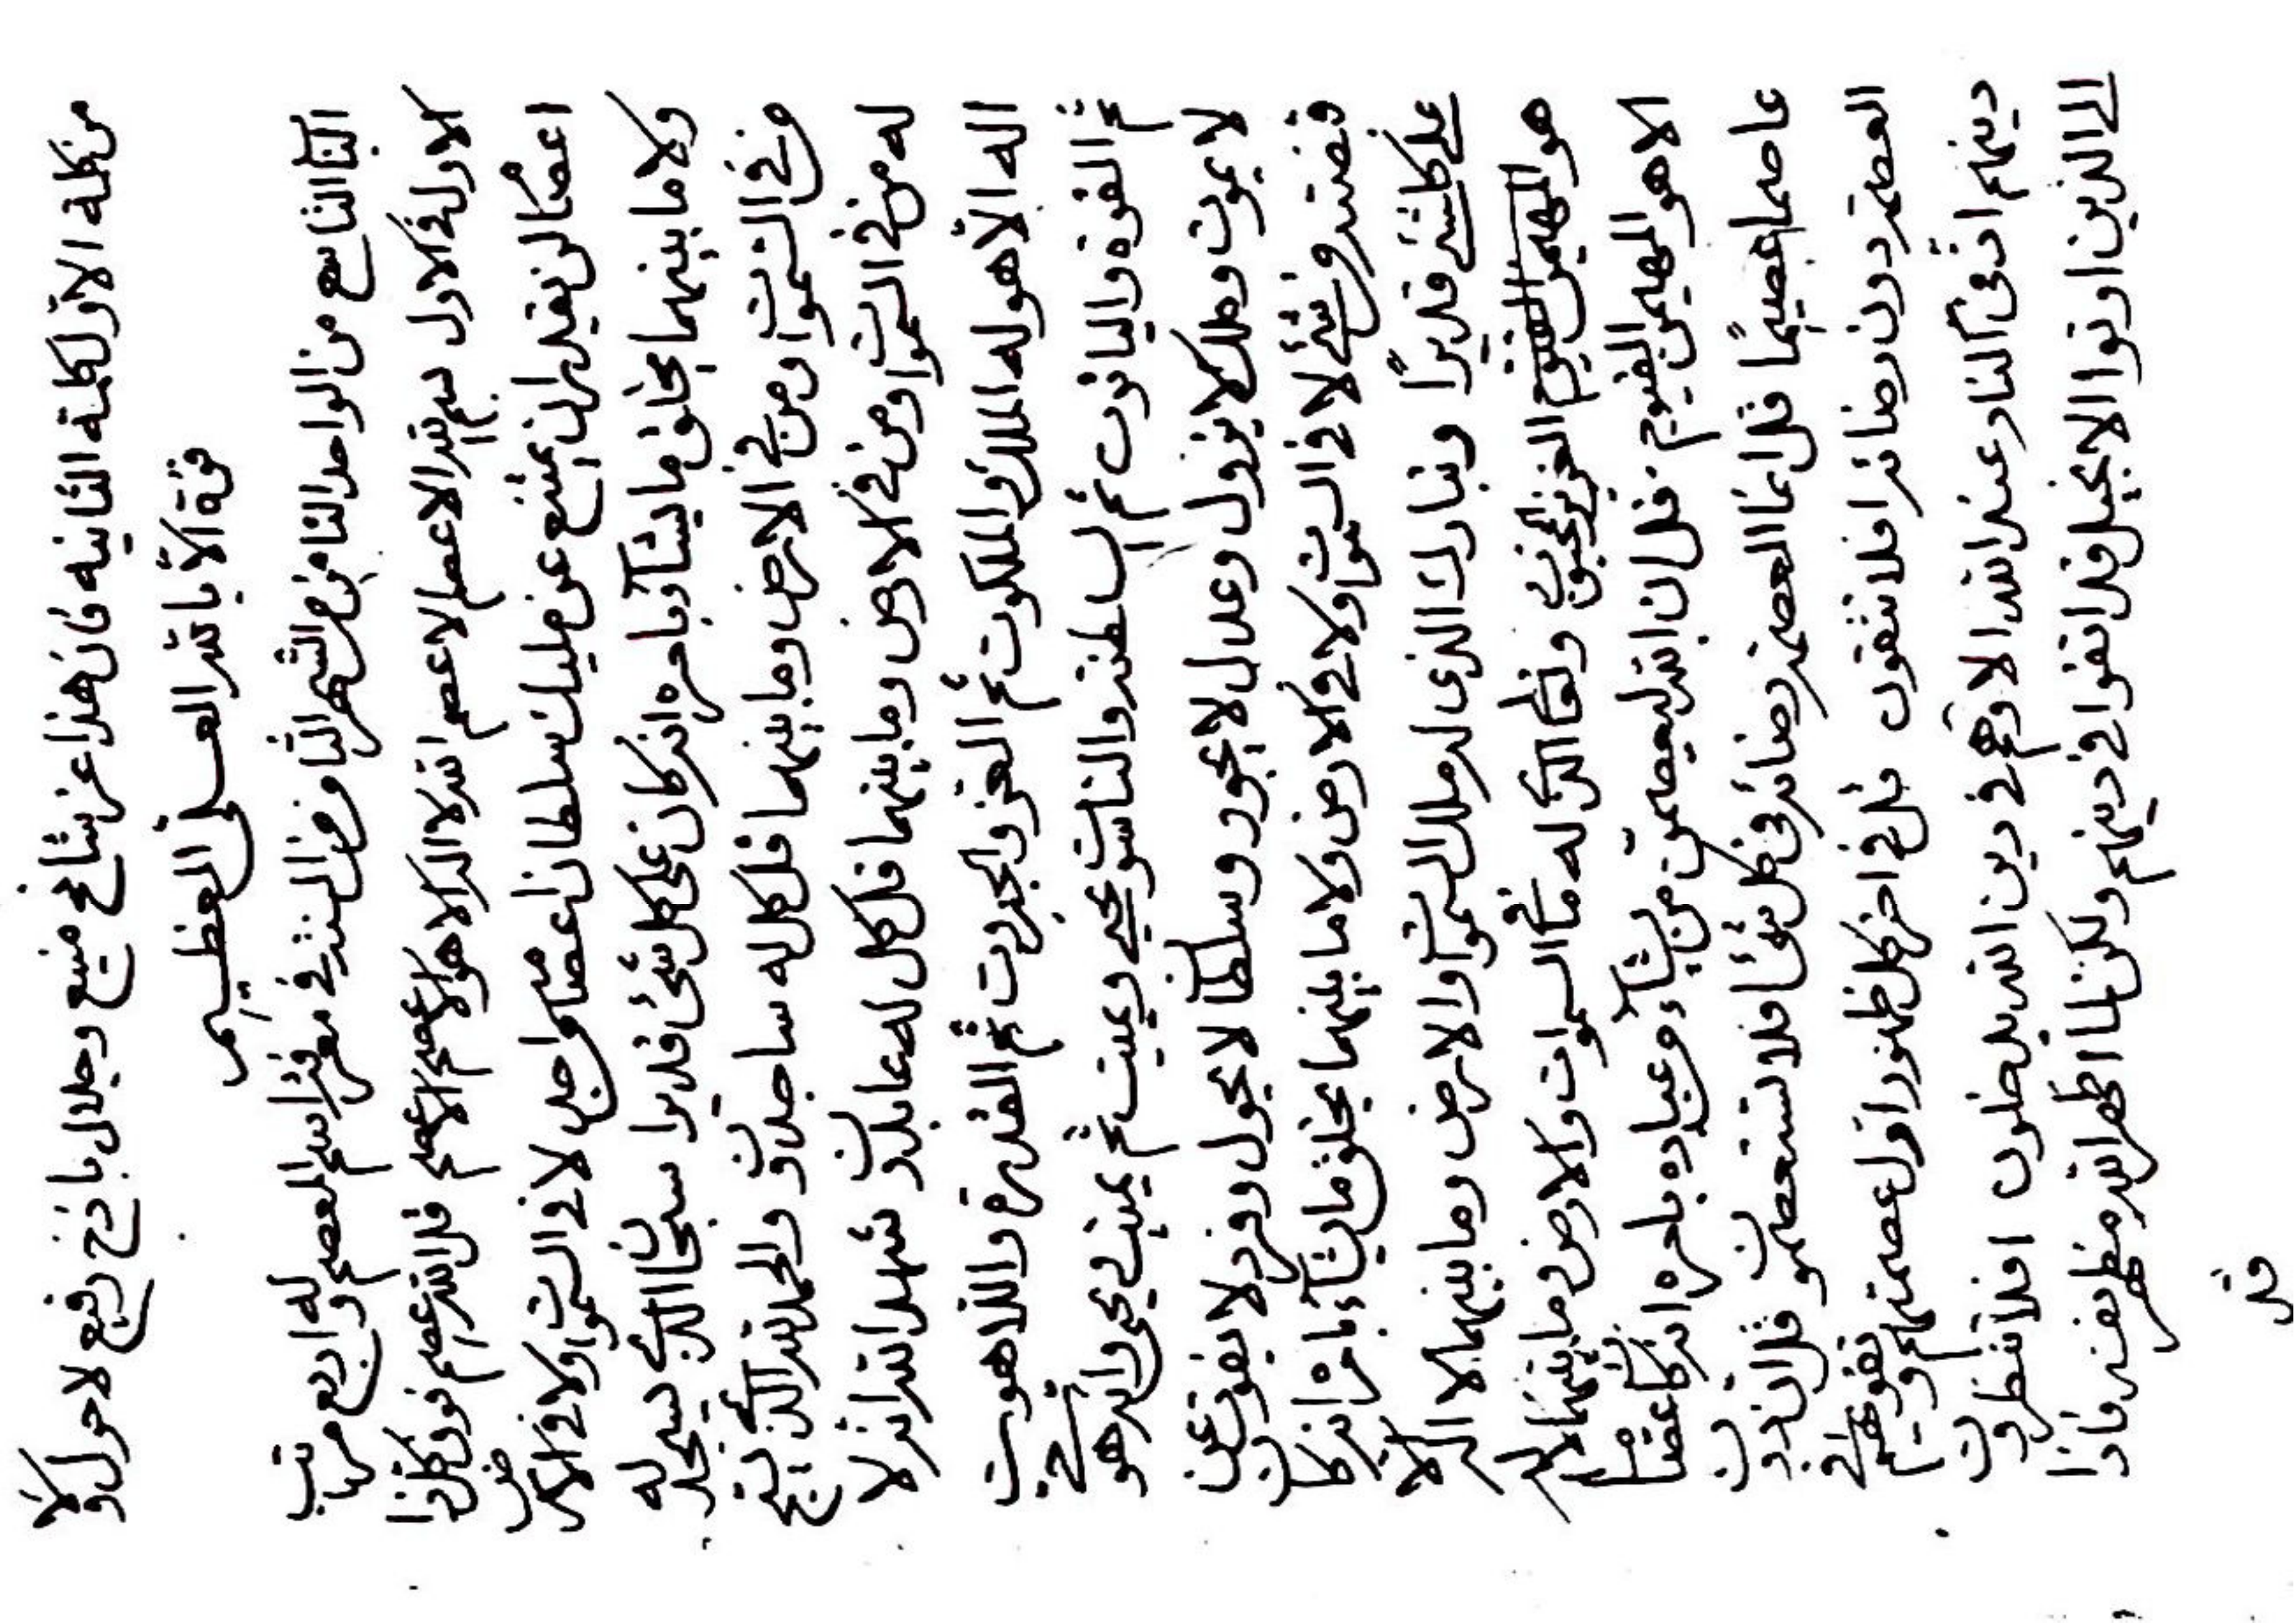 من كلمه الاوّل كلمة الثانيه فان هذا عز شامخ منيع وجلال باذخ رفيع لا حول ولا
قوّة الّا بالله العلىّ العظيم
الباب التاسع من الواحد الثامن من الشهر الثامن من السنة فى معرفة اسم العصم وله اربع مراتب
الاول فى الاول بسم الله الاعصم الاعصم الله لا اله الا هو الاعصم الاعصم قل الله عصم فوق كل ذا
اعصام لن يقدر ان يمتنع عن مليك سلطان اعصامه من احد لا فى السموات ولا فى الارض
ولا ما بينهما يخلق ما يشآء بامره انه كان على كل شئ قديرا سبحان الذى يسجد له
من فى السموات ومن فى الارض وما بينهما قل كل له ساجدون والحمد لله الذى يسبح
له من فى السموات ومن فى الارض وما بينهما قل كل له عابدون شهد الله انه لا
اله الا هو له الملك والملكوت ثم العز والجبروت ثم القدرة واللاهوت
ثم القوة والياقوت ثم السلطنة والناسوت يحيى ويميت ثم يميت ويحيى وانه هو حى
لا يموت وملك لا يزول وعدل لا يجور وسلطان لا يحول وفرد لا يفوت عن
قبضته من شئ لا فى السموات ولا فى الارض ولا ما بينهما يخلق ما يشآء بامره انه كان
على كلشئ قديرًا وتبارك الذى له ملك السموات والارض وما بينهما لا اله الا
هو المهيمن القيوم العزيز المحبوب وتعالى الذى له ما فى السموات والارض وما بينهما لا اله
الا هو المهيمن القيوم قل ان الله ليعصمن من يشآء من عباده بامره انه كان عصاما
عاصما عصيمًا قل انما العصمة رضائه فى كل شئ افلا تستعصمون قل ان الذين
العصمة دون رضائه افلا تتقون قل فى اخر كل ظهور اول عصمتهم وتقويهم فى
دينهم ادنى النار عند الله الا وهم فى دين الله يدخلون افلا تنظرون
الى الذين اوتوا الانجيل قد اتقوا فى دينهم ولكن لما اظهر الله مظهر نفسه فاذا
قل